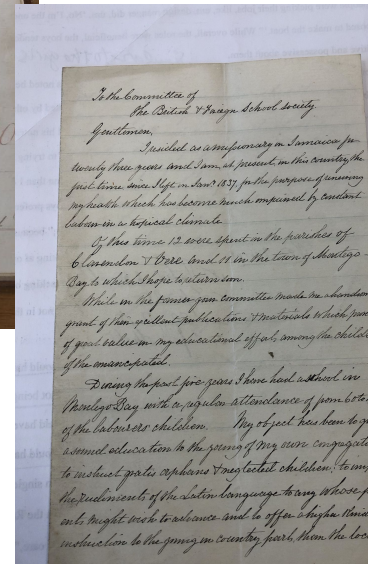 To the Committee of
the British & Foreign School Society.
Gentlemen,
I resided as a missionary in Jamaica for
twenty three years and I am, at present, in this country, the
first time since I left in Jany 1837, for the purpose of renewing
my health which has become much impaired by constant
labour in a tropical climate
Of this time 12 were spent in the parishes of
Clarendon & Vere and 11 in the town of Montego-
Bay to which I hope to return soon.
While in the former your committee made me a handsome
grant of their excellent publications & materials which
of great value in my educational efforts among the
of the emancipated.
During the past five years I have had a school in
Montego Bay with a regular attendance of from 60 to
of the labourers children. My object has been to
a sound education to the young of my own
to instruct gratis orphans & neglected children; to
the rudiments of the Latin language to any whose
might wish to advance and to offer a higher
instruction to the young in country parts than the